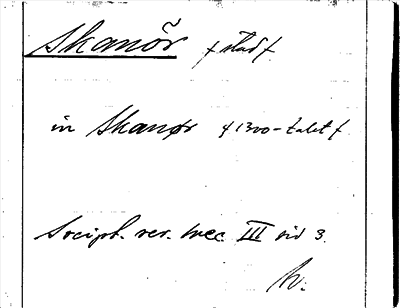 Skanör /stad/
in Skanør /1300-talet/
Script. rer. svec. III sid 3.